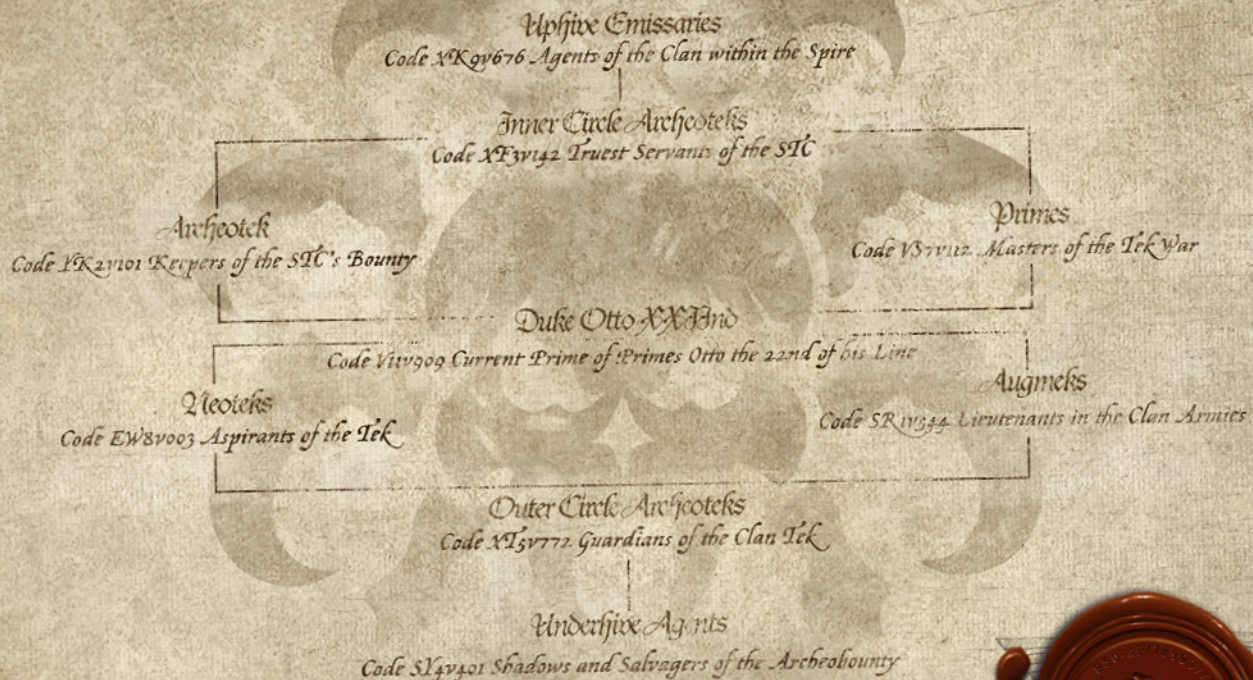 Uphive Emissaries
Code XK9v676 Agents of the Clan within the Spire
Inner Circle Archeoteks
Code XF3v142 Truest Servants of the STC
Archeotek
Code YK2v101 Keepers of the STC's Bounty
Primes
Code VS7v112 Masters of the Tek War
Duke Otto XXIInd
Code V11v909 Current Prime of Primes Otto the 22nd of his Line
Neoteks
Code EW8v003 Aspirants of the Tek
Augmeks
Code SR1v544 Lieutenants in the Clan Armies
Outer Circle Archeoteks
Code XT5v772 Guardians of the Clan Tek
Underhive Agents
Code SY4v401 Shadows and Salvagers of the Archeobounty